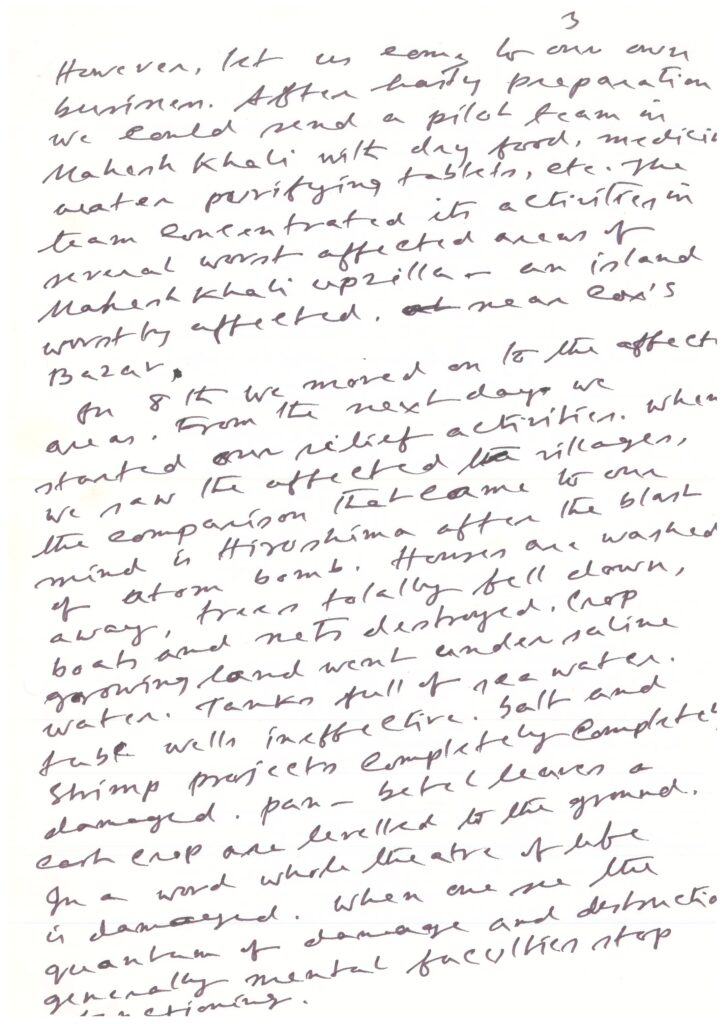 3
However, let us come to our own
business. After hasty preparation
we could send a pilot team in
Mahesh Khali with dry food, medicin
water purifying tablets, etc. The
team concentrated its activities in
several worst affected areas of
Mahesh Khali upzilla - an island
worstly affected, near Cox's
Bazar.
In 8th we moved on to the affect
areas. From the next day we
started our relief activities. When
we saw the affected villages,
the comparison that came to our
mind is Hiroshima after the blast
of atom bomb. Houses are washed
away, trees totally fell down,
boats and nets destroyed. Crop
growing land went under saline
water. Tanks full of sea water.
tube wells ineffective. Salt and
Shrimp projects completely complete
damaged. pan - betel leaves a
cash crop are levelled to the ground.
In a word whole theatre of life
is damaged. When one see the
quantum of damage and destructio
generally mental faculties stop
functioning.